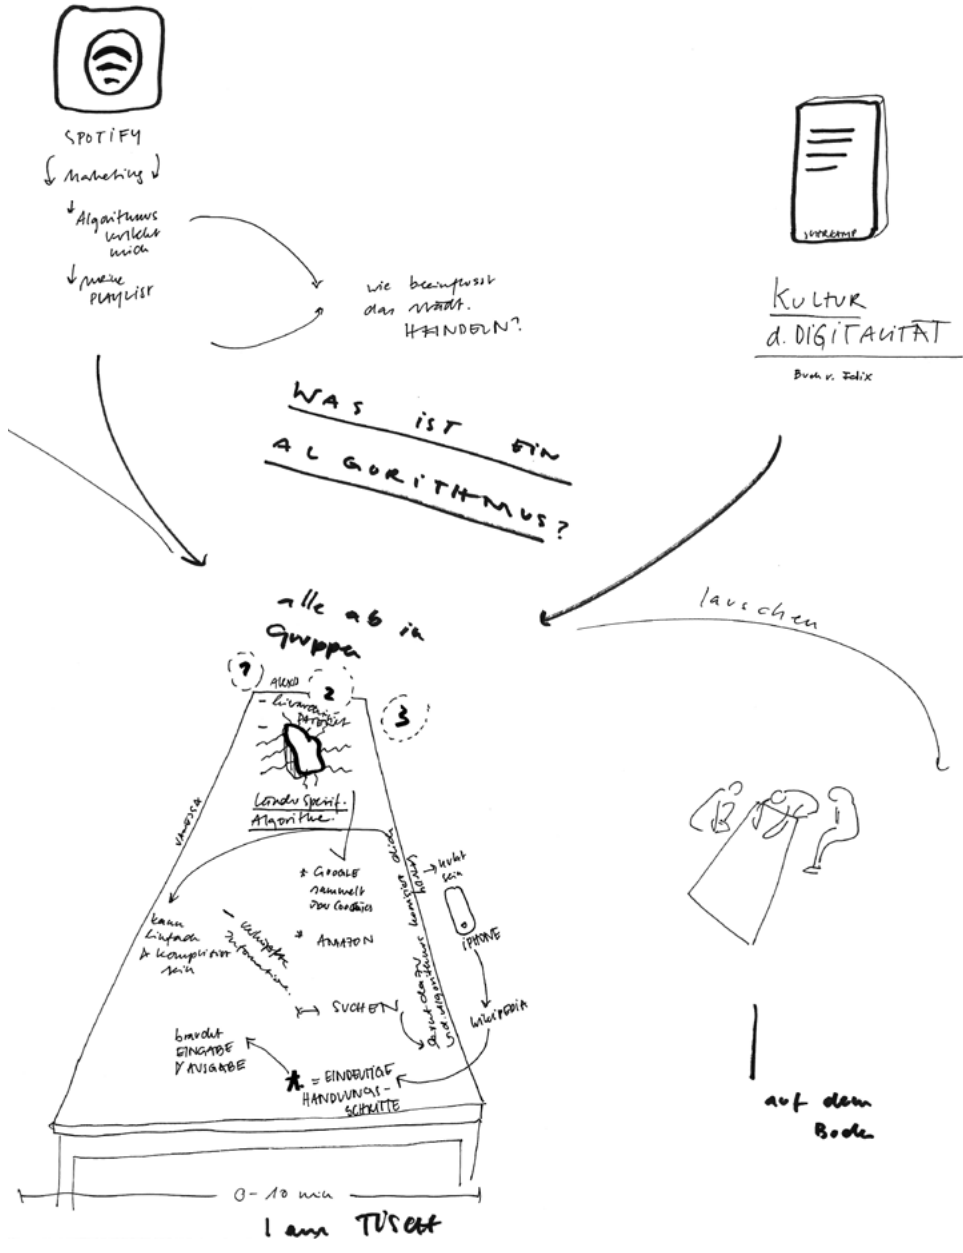 SPOTIFY
Marketing
Algorithmus
mich
meine
PLAYLIST
wie beeinflusst
das städt.
HANDELN?
SUHRKAMP
KULTUR
d. DIGITALITÄT
Buch v. Felix
WAS IST EIN
ALGORITHMUS?
lauschen
alle ab in
Gruppen
1
2
3
VANESSA
Algorithme.
* GOOGLE
sammelt
Cookies
* AMAZON
kann
einfach
& kompliziert
sein
verknüpfte
Informationen.
SUCHEN
iPHONE
WIKIPEDIA
braucht
EINGABE
& AUSGABE
* = EINDEUTIGE
HANDLUNGS-
SCHRITTE
0-10 min
1 am TISCH
auf dem
Boden